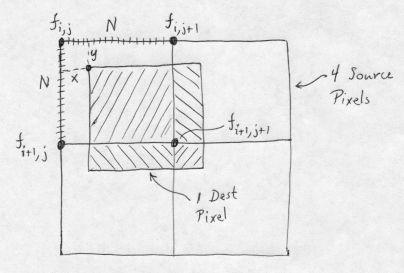 f i,j
N
f i,j+1
y
x
N
4 Source
Pixels
f i+1,j
f i+1,j+1
1 Dest
Pixel